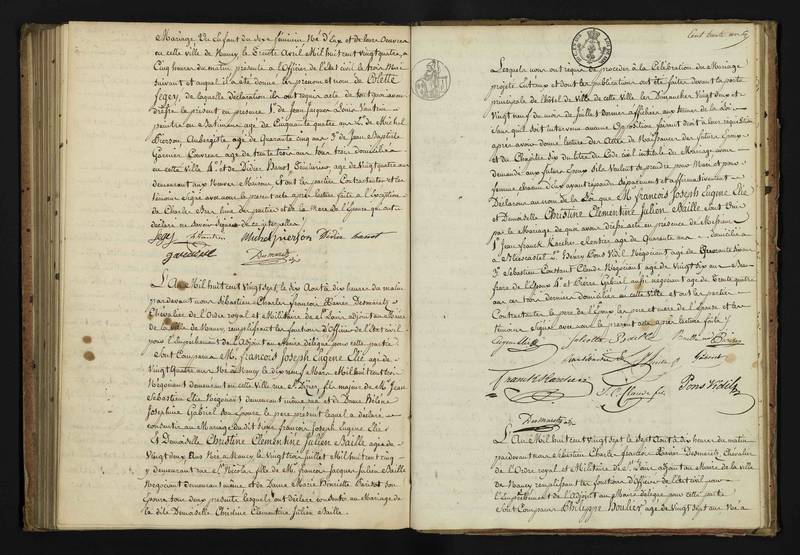 Mariage Un Enfant du Sexe féminin Né d'Eux et de leurs Oeuvres
en cette ville de Nancy le Trente Avril Mil huit cent vingt quatre, à
Cinq heures du matin, présenté à l'officier de l'état civil le trois Mai
suivant et auquel il a été donné les prénoms et nom de Colette
Jegey, de laquelle déclaration ils ont requis acte
présent en présence 1.º de Jean Jacques Louis
peintre en Batimens age de Cinquante quatre ans 2.º de Michel
Pierson, Aubergiste, agé de Quarante cinq ans 3.º de Jean Baptiste
Garnier Couvreur agé de trente trois ans tous trois domiciliés
en cette ville 4.º et de Didier agé de Vingt quatre ans
demeurant aux et ont les parties Contractantes et les
témoins Signé avec nous le present acte après lecture faite à l'Exception
de Charles des parties et de la Mere de l'Epouse qui ont
declaré ne savoir signer de ce interpellés
Michel pierson Didier
Desmaretz
L'An Mil huit cent vingt sept le Six Aout à dix heures du matin
pardevant nous Sébastien Charles françois Xavier Desmaretz
Chevalier de l'Ordre royal et Militaire de St Louis adjoint au Maire
de la ville de Nancy, remplissant les fonctions d'Officier de l'Etat civil
pour l'Empêchement de l'Adjoint au Maire délégué pour cette partie
Sont Comparus M. françois Joseph Eugène Elie agé de
Vingt Quatre ans Né à Nancy le dix neuf Mil huit cent trois
Négociant demeurant en cette ville rue St Dizier, fils majeur de M.r Jean
Sébastien Elie Négociant demeurant même rue et de Dame Hélène
Josephine Gabriel Son Epouse, le père présent lequel a déclaré
consentir au Mariage du dit Sieur françois Joseph Eugène Elie
Et Demoiselle Christine Clementine Julien Baille agée de
Vingt deux ans Née à Nancy le Vingt trois juillet Mil huit cent cinq
y demeurant rue St Nicolas fille de M. françois Jacques Julien Baille
Négociant demeurant même et de Dame Marie Henriette son
Epouse tous deux presents lesquels ont déclaré consentir au Mariage de
la dite Demoiselle Christine Clementine Julien Baille.
Cent trente
Lesquels nous ont requis de procéder à la Célébration du Mariage
projeté Entr'eux et dont les publications ont été faites devant la porte
principale de l'hôtel de Ville de cette ville les Dimanches Vingt deux et
Vingt neuf du mois de juillet dernier affichées aux termes de la loi
Sans qu'il soit intervenu aucune Opposition faisant droit à leur réquisition
après avoir donné lecture des Actes de Naissances des futurs Epoux
et du Chapitre Six du titre du Code civil intitulé du Mariage, avons
demandé aux futurs Epoux S'ils Veulent se prendre pour Mari et pour
femme chacun d'Eux ayant répondu séparément et affirmativement
Déclarons au nom de la Loi que M. françois Joseph Eugène Elie
et Demoiselle Christine Clementine Julien Baille Sont Unis
par le Mariage de quoi avons dressé acte en présence de Messieurs
1.º Jean Franck Karcher Rentier agé de Quarante ans domicilié
à 2.º Henry Pons Négociant agé de Quarante ans
3.º Sébastien Constant Claude Négociant agé de Vingt six ans
frere de l'Epoux 4.º et Pierre Gabriel aussi negociant agé de Trente quatre
ans ces trois derniers domiciliés en cette ville et ont les parties
Contractantes le pere de l'Epoux les pere et mere de l'Epouse et les
témoins Signé avec nous le present acte après lecture faite
Eugène Elie
Franck Karcher
Desmaretz
L'An Mil huit cent vingt sept le Sept Aout à dix heures du matin
pardevant nous Sébastien Charles françois Xavier Desmaretz, Chevalier
de l'Ordre royal et Militaire de St Louis adjoint au Maire de la ville
de Nancy remplissant les fonctions d'Officier de l'Etat civil pour
l'Empêchement de l'Adjoint au Maire délégué pour cette partie
Sont Comparus Philippe Houlier agé de Vingt sept ans Né à